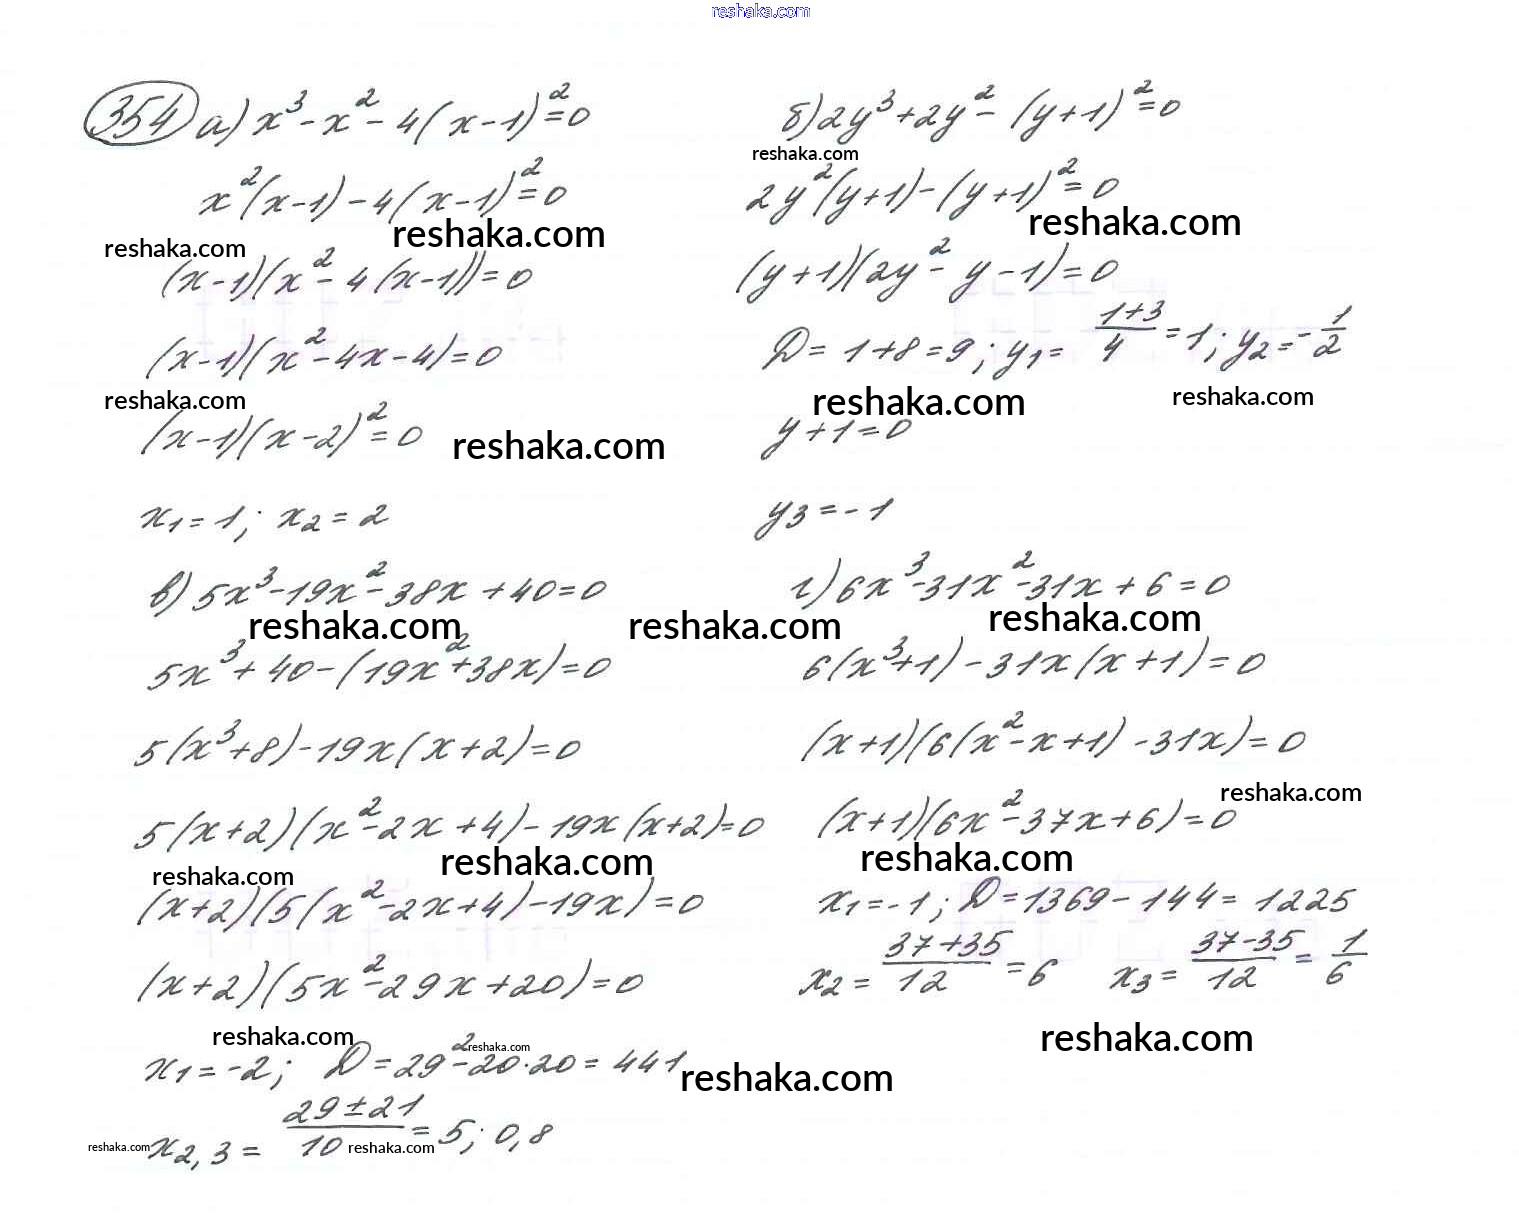 reshaka.com
354 а) x³ - x² - 4(x-1)² = 0
x²(x-1) - 4(x-1)² = 0
reshaka.com
reshaka.com
(x-1)(x² - 4(x-1)) = 0
(x-1)(x² - 4x - 4) = 0
reshaka.com
(x-1)(x-2)² = 0
reshaka.com
x₁ = 1; x₂ = 2
б) 2y³ + 2y² - (y+1)² = 0
reshaka.com
2y²(y+1) - (y+1)² = 0
reshaka.com
(y+1)(2y² - y - 1) = 0
D = 1+8 = 9; y₁ = (1+3)/4 = 1; y₂ = -1/2
reshaka.com
reshaka.com
y+1 = 0
y₃ = -1
в) 5x³ - 19x² - 38x + 40 = 0
reshaka.com
reshaka.com
5x³ + 40 - (19x² + 38x) = 0
5(x³+8) - 19x(x+2) = 0
5(x+2)(x² - 2x + 4) - 19x(x+2) = 0
reshaka.com
reshaka.com
(x+2)(5(x² - 2x + 4) - 19x) = 0
(x+2)(5x² - 29x + 20) = 0
reshaka.com
x₁ = -2; D = 29² - 20·20 = 441
reshaka.com
reshaka.com
x₂,₃ = (29 ± 21)/10 = 5; 0,8
reshaka.com
reshaka.com
г) 6x³ - 31x² - 31x + 6 = 0
reshaka.com
6(x³+1) - 31x(x+1) = 0
(x+1)(6(x² - x + 1) - 31x) = 0
reshaka.com
(x+1)(6x² - 37x + 6) = 0
reshaka.com
x₁ = -1; D = 1369 - 144 = 1225
x₂ = (37+35)/12 = 6 x₃ = (37-35)/12 = 1/6
reshaka.com